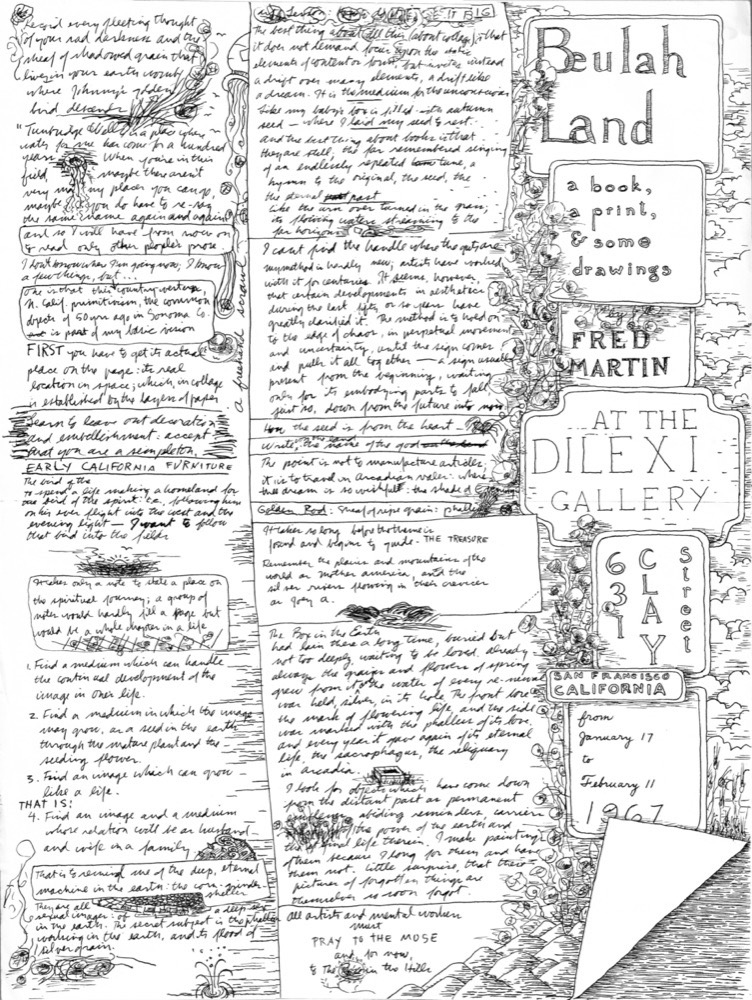 Record every fleeting thought
of your sad darkness and the
sheaf of shadowed grain that
lives in your earth womb
where Johnny's golden
bird descends
"Tunbridge Wells is a place where
water for me has come for a hundred
years. When you're in this
field, maybe there aren't
very many places you can go,
maybe you do have to re-say
the same name again and again
and so I will have from now on
to read only other people's prose.
I don't know where I'm going now; I know
a few things, but...
One is that this country western,
N. Calif. primitivism, the common
objects of 50 yrs ago in Sonoma Co.
is part of my basic vision
FIRST you have to get its actual
place on the page: its real
location in space; which, in collage
is established by the layers of paper.
Learn to leave out decoration
and embellishment: accept
that you are a simpleton.
EARLY CALIFORNIA FURNITURE
The bird of the
to spend a life making a homeland for
one bird of the spirit: i.e., following him
on his ever flight into the west and the
evening light — I want to follow
that bird into the fields
It takes only a note to stake a place on
the spiritual journey; a group of
notes would hardly fill a page but
would be a whole chapter in a life
1. Find a medium which can handle
the continual development of the
image in ones life.
2. Find a medium in which the image
may grow, as a seed in the earth
through the mature plant and the
seeding flower.
3. Find an image which can grow
like a life.
THAT IS:
4. Find an image and a medium
whose relation will be as husband
and wife in a family
That is to remind me of the deep, eternal
machine in the earth: the corn-grinder
sheller
They are all a deep
sexual image: of
in the earth. The secret subject is the phallus
working in the earth, and its flood of
silver grain.
a freehand scrawl
IT BIG
The best thing about all this (about collage) is that
it does not demand focus upon the static
elements of content or form, but invites instead
a drift over many elements, a drift like
a dream. It is the medium for the unconscious
Like my baby's box is filled with autumn
seed — where I laid my seed to rest.
and the best thing about books is that
they are still, the far remembered singing
of an endlessly repeated tune, a
hymn to the original, the seed, the
the eternal past
Like the arm over turned in the grass;
its flowing waters streaming to the
far horizon
I can't find the handle where the gates are
my method is hardly new; artists have worked
with it for centuries. It seems, however,
that certain developments in aesthetics
during the last fifty or so years have
greatly clarified it. The method is to hold on
to the edge of chaos, in perpetual movement
and uncertainty, until the sign comes
and pulls it all together — a sign usually
present from the beginning, waiting
only for its embodying parts to fall,
just so, down from the future into now.
the seed is from the heart —
Write, the name of the god
The point is not to manufacture articles;
it is to travel in Arcadian vales: where
the dream is so wistful: the shade of
Golden Rod: Sheaf of ripe grain: phallus
It takes so long before the theme is
found and begins to guide. THE TREASURE
Remember the plains and mountains of the
world as Mother america, and the
silver rivers flowing in their crevices
as
The Box in the Earth
had lain there a long time, buried but
not too deeply, waiting to be loved. already
always the grain and flowers of spring
grew from it & the water of every re-newal
was held, silver, in its hole. The front bore
the mark of flowering life, and the sides
was marked with the phallus of its love.
and every year it gave again of its eternal
life, the sarcophagus, the reliquary
in arcadia.
I look for objects which have come down
from the distant past as permanent
emblems, abiding reminders, carriers
of the power of the earth and
the eternal life therein. I make paintings
of them because I long for them and have
them not. Little surprise, that these
pictures of forgotten things are
themselves so soon forgot.
All artists and mental women
must
PRAY TO THE MUSE
and, for now,
to The in the Hills
Beulah
Land
a book,
a print,
& some
drawings
by
FRED
MARTIN
AT THE
DILEXI
GALLERY
631
CLAY
Street
SAN FRANCISCO
CALIFORNIA
from
January 17
to
February 11
1967